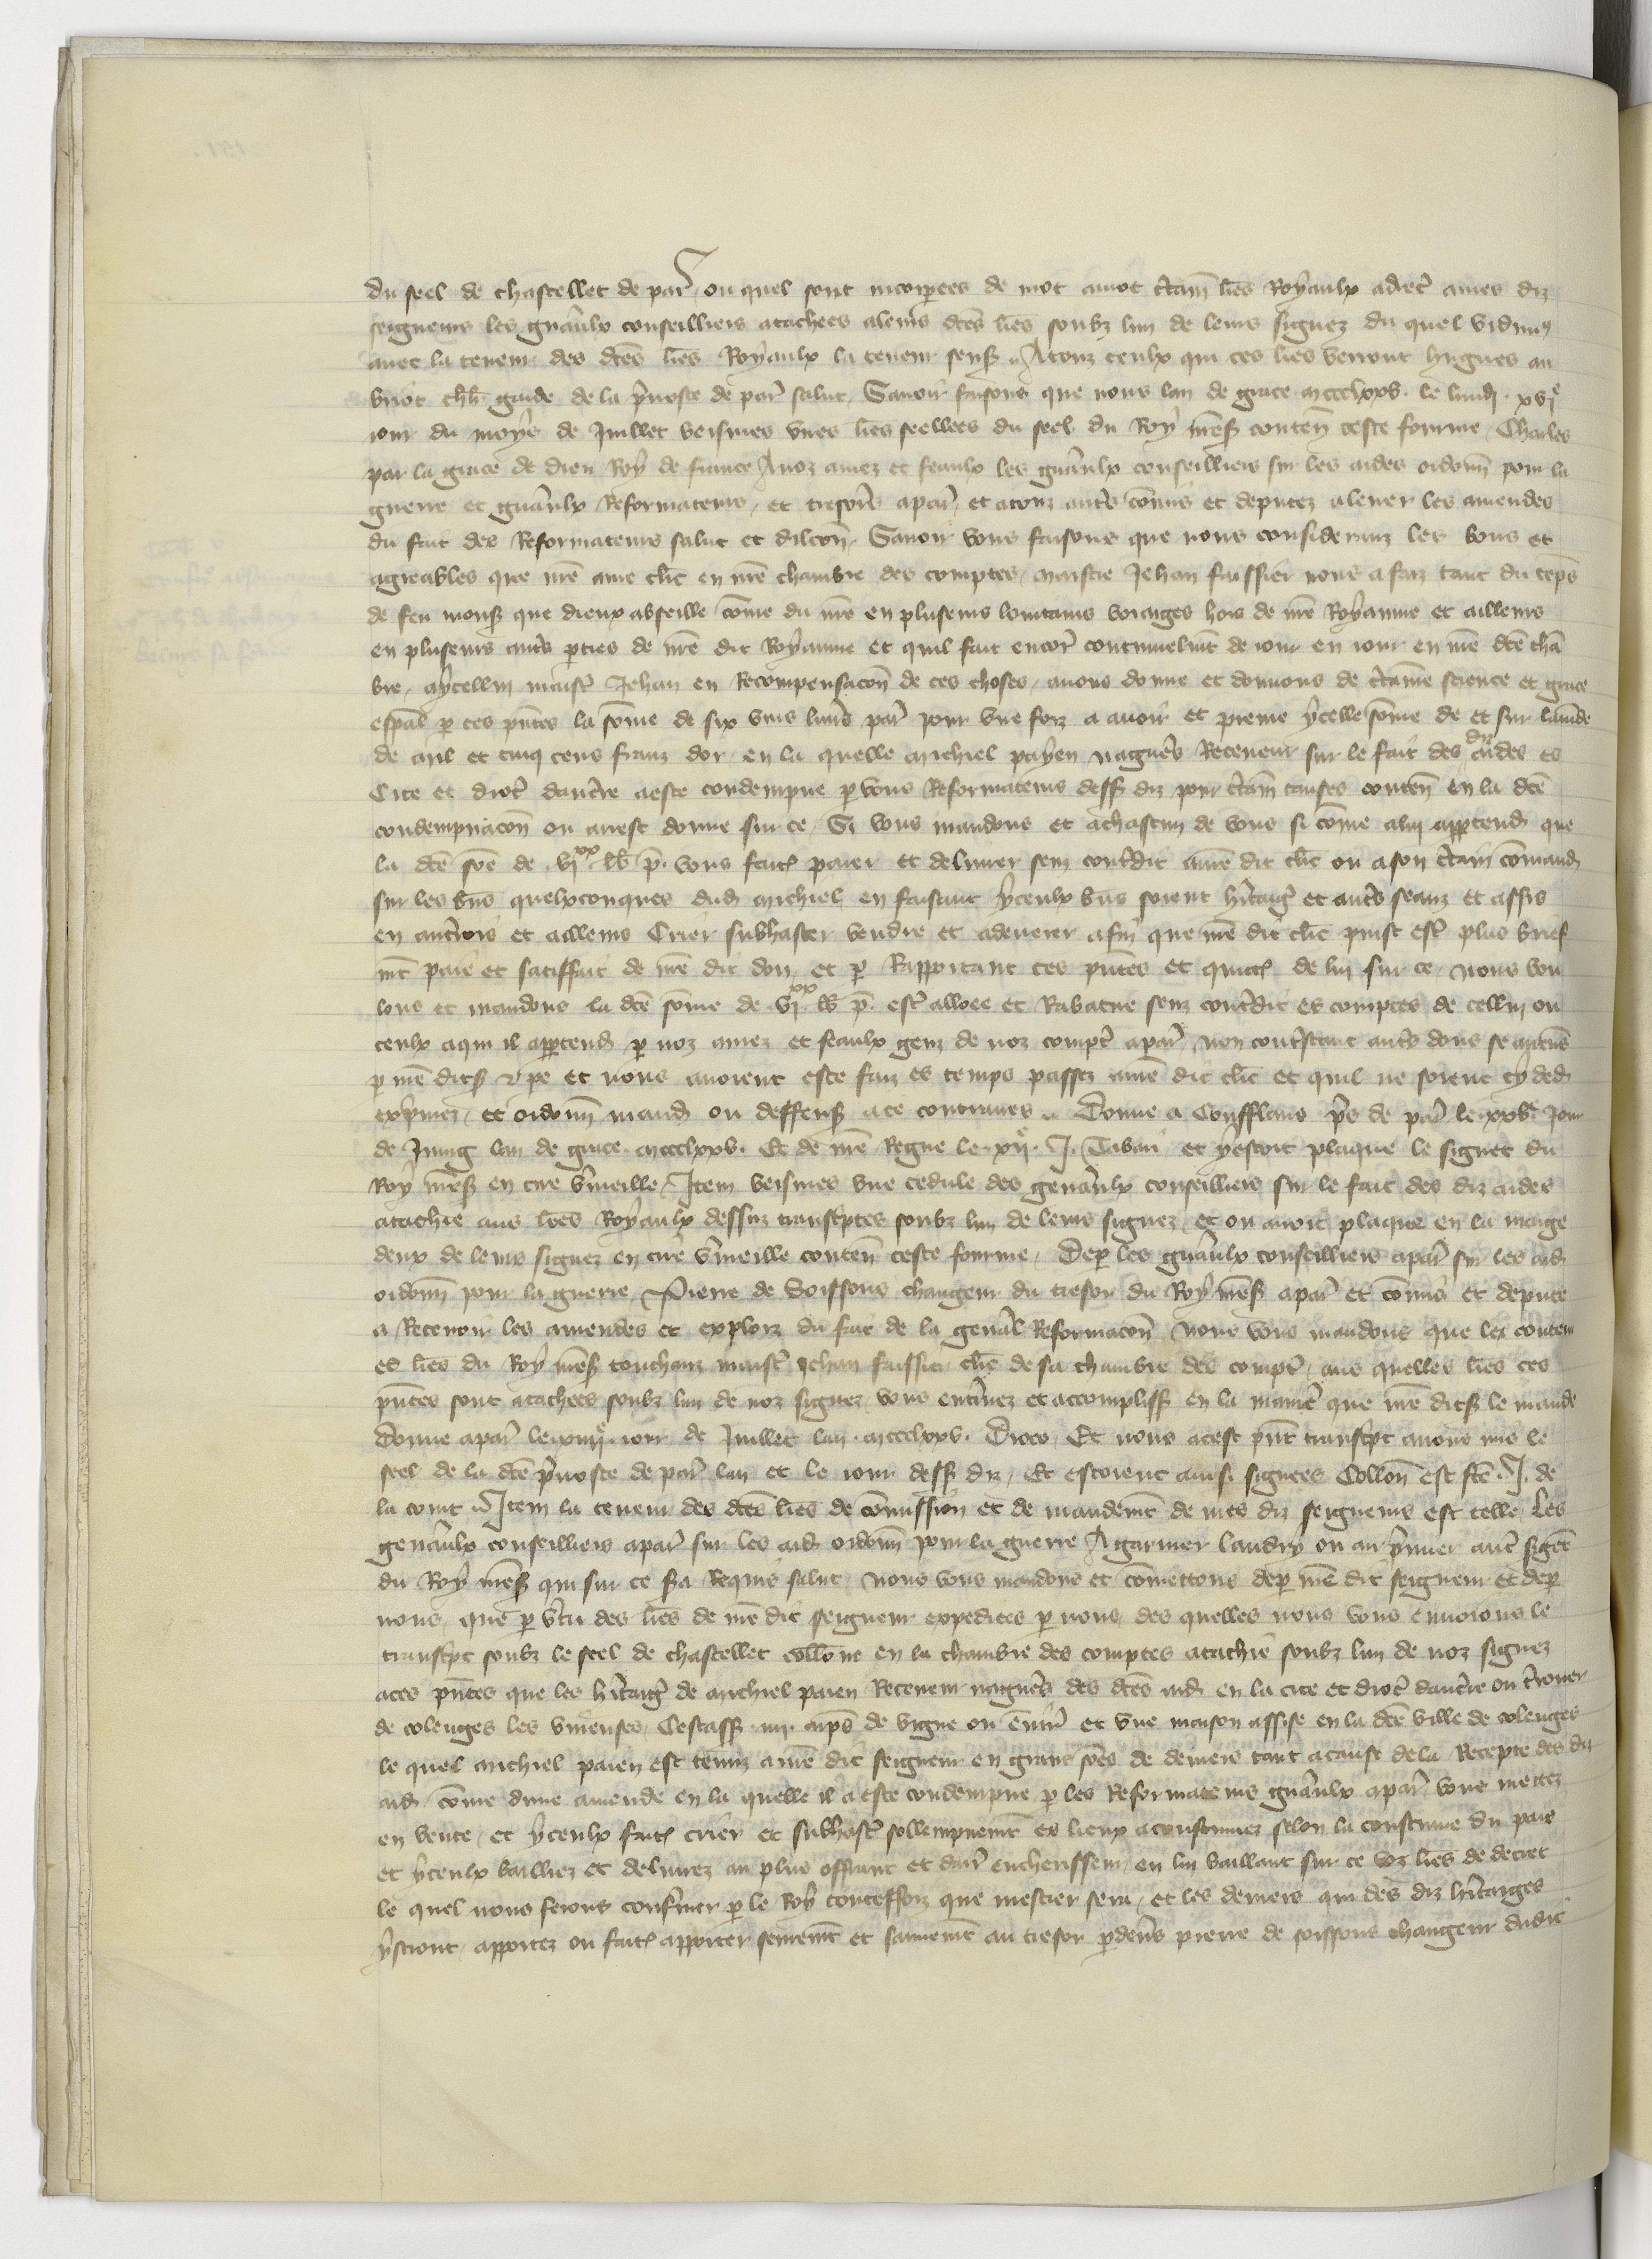 du seel de chastellet de par̃ ou quel sont incorpees de mot amot c̃tain̄ lr̃es Royaulx adrec̃ ames diz
seigneurs les gñaulx conseilliers atachees aleurs dc̃es lr̃es soubz lun de leurs signez du quel vidimus
auec la teneur des dc̃es lr̃es Royaulx la teneur sensuit Atouz ceulx qui ces lr̃es verront hugues au
briot chlr̃ garde de la p̃uoste de par̃ salut Sauoir faisons que nous lan de grace mccclxxv le lundi xvıᵉ
iour du moys de Juillet veismes vnes lr̃es seellees du seel du Roy nr̃e s̃ conten̄ ceste fourme Charles
par la grace de dieu Roy de france Anoz amez et feaulx les gñaulx conseilliers sur les aides ordonn̄ pour la
guerre et gñaulx Reformateurs et tresor̃s apar̃ et atouz aut̃s cōmis et deputez aleuer les amendes
du fait des Reformateurs salut et dilcōn Sauoir vous faisons que nous considerans les bons et
agreables que nr̃e ame clerc en nr̃e chambre des comptes maistre Jehan faissier nous a faiz tant du tēps
de feu mons̃ que dieux absoille cōme du nr̃e en pluseurs lointains voiaiges hors de nr̃e Royaume et ailleurs
en pluseurs aut̃s pties de nr̃e dit Royaume et quil fait encor̃ continuelm̃t de iour en iour en nr̃e dc̃e cham̄
bre aycellui maist̃ Jehan en Recompensacōn de ces choses auons donne et donnons de c̃taine science et grace
esp̄al p ces pñtes la sōme de six vins liur̃s par̃ pour vne foiz a auoir et prenre ycelle sōme de et sur lam̄de
de mil et cinq cens frans dor en la quelle michiel payen nagueres Receueur sur le fait des diz aides es
Cite et dioc̃ daucerre aeste condempne p vous Reformateurs dess̃ diz pour c̃tain̄ causes conten̄ en la dc̃e
condempnacōn ou arrest donne sur ce Si vous mandons et achascun de vous si cōme alui apptendra que
la dc̃e sōe de vıˣˣ lb̃ p̃ vous faites paier et deliurer senz cont̃dit anr̃e dit clerc ou ason c̃tain cōmand
sur les bñs quelxconques dud michiel en faisant yceulx bñs soient h̃itaig̃ et aut̃s seanz et assis
en aucerrois et ailleurs Crier subhaster vendre et adenerer afin que nr̃e dit clerc puist est̃ plus brief
mt̃ paie et satiffait de nr̃e dit don et p Rapportant ces pñtes et quict̃ de lui sur ce nous vou
lons et mandons la dc̃e sōme de vıˣˣ lb̃ p̃ est̃ alloee et Rabatue senz cont̃dit es comptes de cellui ou
ceulx aqui il apptendra p noz amez et feaulx genz de noz compt̃ apar̃ non cont̃stant aut̃s dons se aucuns
p nr̃e dits̃ et pe et nous auoient este faiz es temps passez anr̃e dit clerc et quil ne soient cy ded
exp̃mez et ordonn̄ mand ou deffens̃ ace contraires Donne a Confflans p̃s de par̃ le xxvᵉ Jour
de Juing lan de grace mccclxxv Et de nr̃e Regne le xıȷᵉ J Tabari et yestoit plaque le signet du
Roy nr̃e s̃ en cire v̄meille Item veismes vne cedule des gen̄aulx conseilliers sur le fait des diz aides
atachie aus lr̃es Royaulx dessuz transc̃ptes soubz lun de leurs signez et ou auoit plaque en la marge
deux de leurs signez en cire v̄meille conten̄ ceste fourme Dep les gñaulx conseilliers apar̃ sur les aid
ordonn̄ pour la guerre Pierre de Soissons changeur du tresor du Roy nr̃e s̃ apar̃ et cōmis et depute
a Receuoir les amendes et exploiz du fait de la gen̄al Reformacōn Nous vous mandons que le contenu
es lr̃es du Roy nr̃e s̃ touchanz maist̃ Jehan faissier clerc de sa chambre des compt̃ aus quelles lr̃es ces
pñtes sont atachees soubz lun de noz signez vous ent̃inez et accompliss̃ en la manier̃ que nr̃e dits̃ le mande
donne apar̃ le xııȷᵉ iour de Juillet lan mccclxxv Droco Et nous acest p̄nt transc̃pt auons mis le
seel de la dc̃e p̃uoste de par̃ lan et le iour dess̃ diz Et estoient ainsi signees Collōn est fc̃e J de
la court Item la teneur des dc̃es lr̃es de cōmission et de mandemt̃ de mes diz seigneurs est telle Les
gen̄aulx conseilliers apar̃ sur les aid ordonn̄ pour la guerre A garnier landry ou au p̃mier aut̃ sig̃ẽt
du Roy nr̃e s̃ qui sur ce s̃a Requis salut Nous vous mandons et cōmettons dep nr̃e dit seigneur et dep
nous que p v̄tu des lr̃es de nr̃e dit seigneur expedices p nous des quelles nous vous enuoions le
transc̃pt soubz le seel de chastellet collōne en la chambre des comptes atachie soubz lun de noz signez
aces pñtes que les h̃itaig̃ de michiel paien Receueur nagueres des dc̃es aid en la cite et dioc̃ daucerre ou t̃rouer
de colenges les vineuses Cestass̃ iiij arp̄s de vigne ou enuir̃ et vne maison assise en la dc̃e ville de colenges
le quel michiel paien est tenuz a nr̃e dit seigneur en grans sōes de deniers tant acause dela Recepte des diz
aid cōme dune amende en la quelle il a este condempne p les Reformateurs gñaulx apar̃ vous mettez
en vente et yceulx fait̃ crier et subhast̃ sollempnemt̃ es lieux acoustumez selon la coustume du pais
et yceulx bailliez et deliurez au plus offrant et darr̃ encherisseur en lui baillant sur ce voz lr̃es de decret
le quel nous ferons conf̃mer p le Roy touteffoiz que mestier sera et les deniers qui des diz h̃itaiges
ystront apportez ou fait̃ apporter seuremt̃ et sauuemt̃ au tresor p deuers pierre de soissons changeur dudit